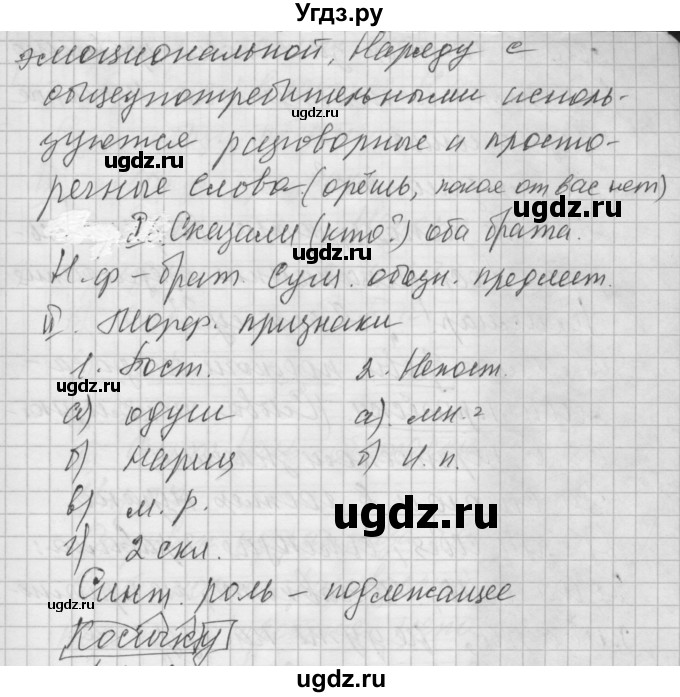 Угдз.ру
эмоциональной. Наряду с
общеупотребительными исполь-
зуются разговорные и просто-
речные слова (орёшь, покоя от вас нет)
I. Сказали (кто?) оба брата.
Н.ф – брат Сущ. обозн. предмет.
II. Морф. признаки
1. Пост. 2. Непост.
а) одуш а). мн. ч
б) нариц б) И. п.
в) м. р.
г) 2 скл.
Синт. роль – подлежащее
Косичку
ugdz.ru
ugdz.ru
ugdz.ru
ugdz.ru
ugdz.ru
ugdz.ru
ugdz.ru
ugdz.ru
ugdz.ru